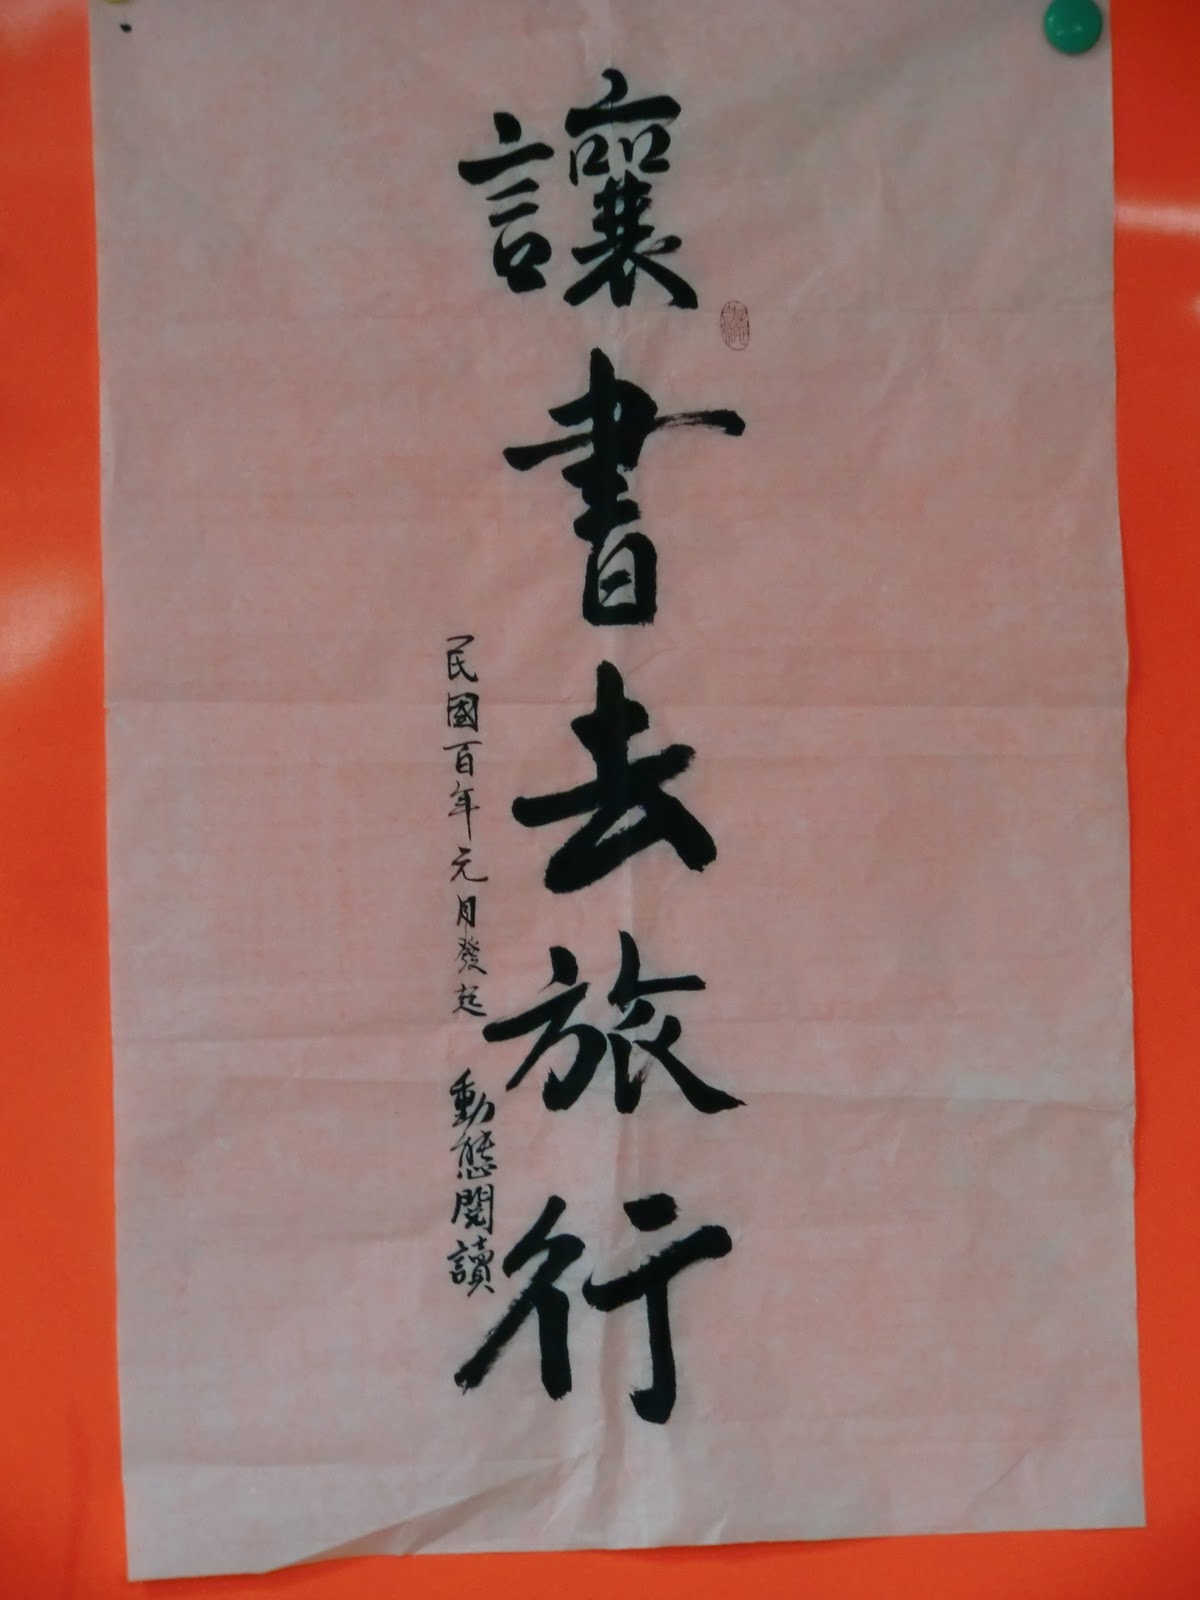 讓書去旅行
民國百年元月發起 動態閱讀